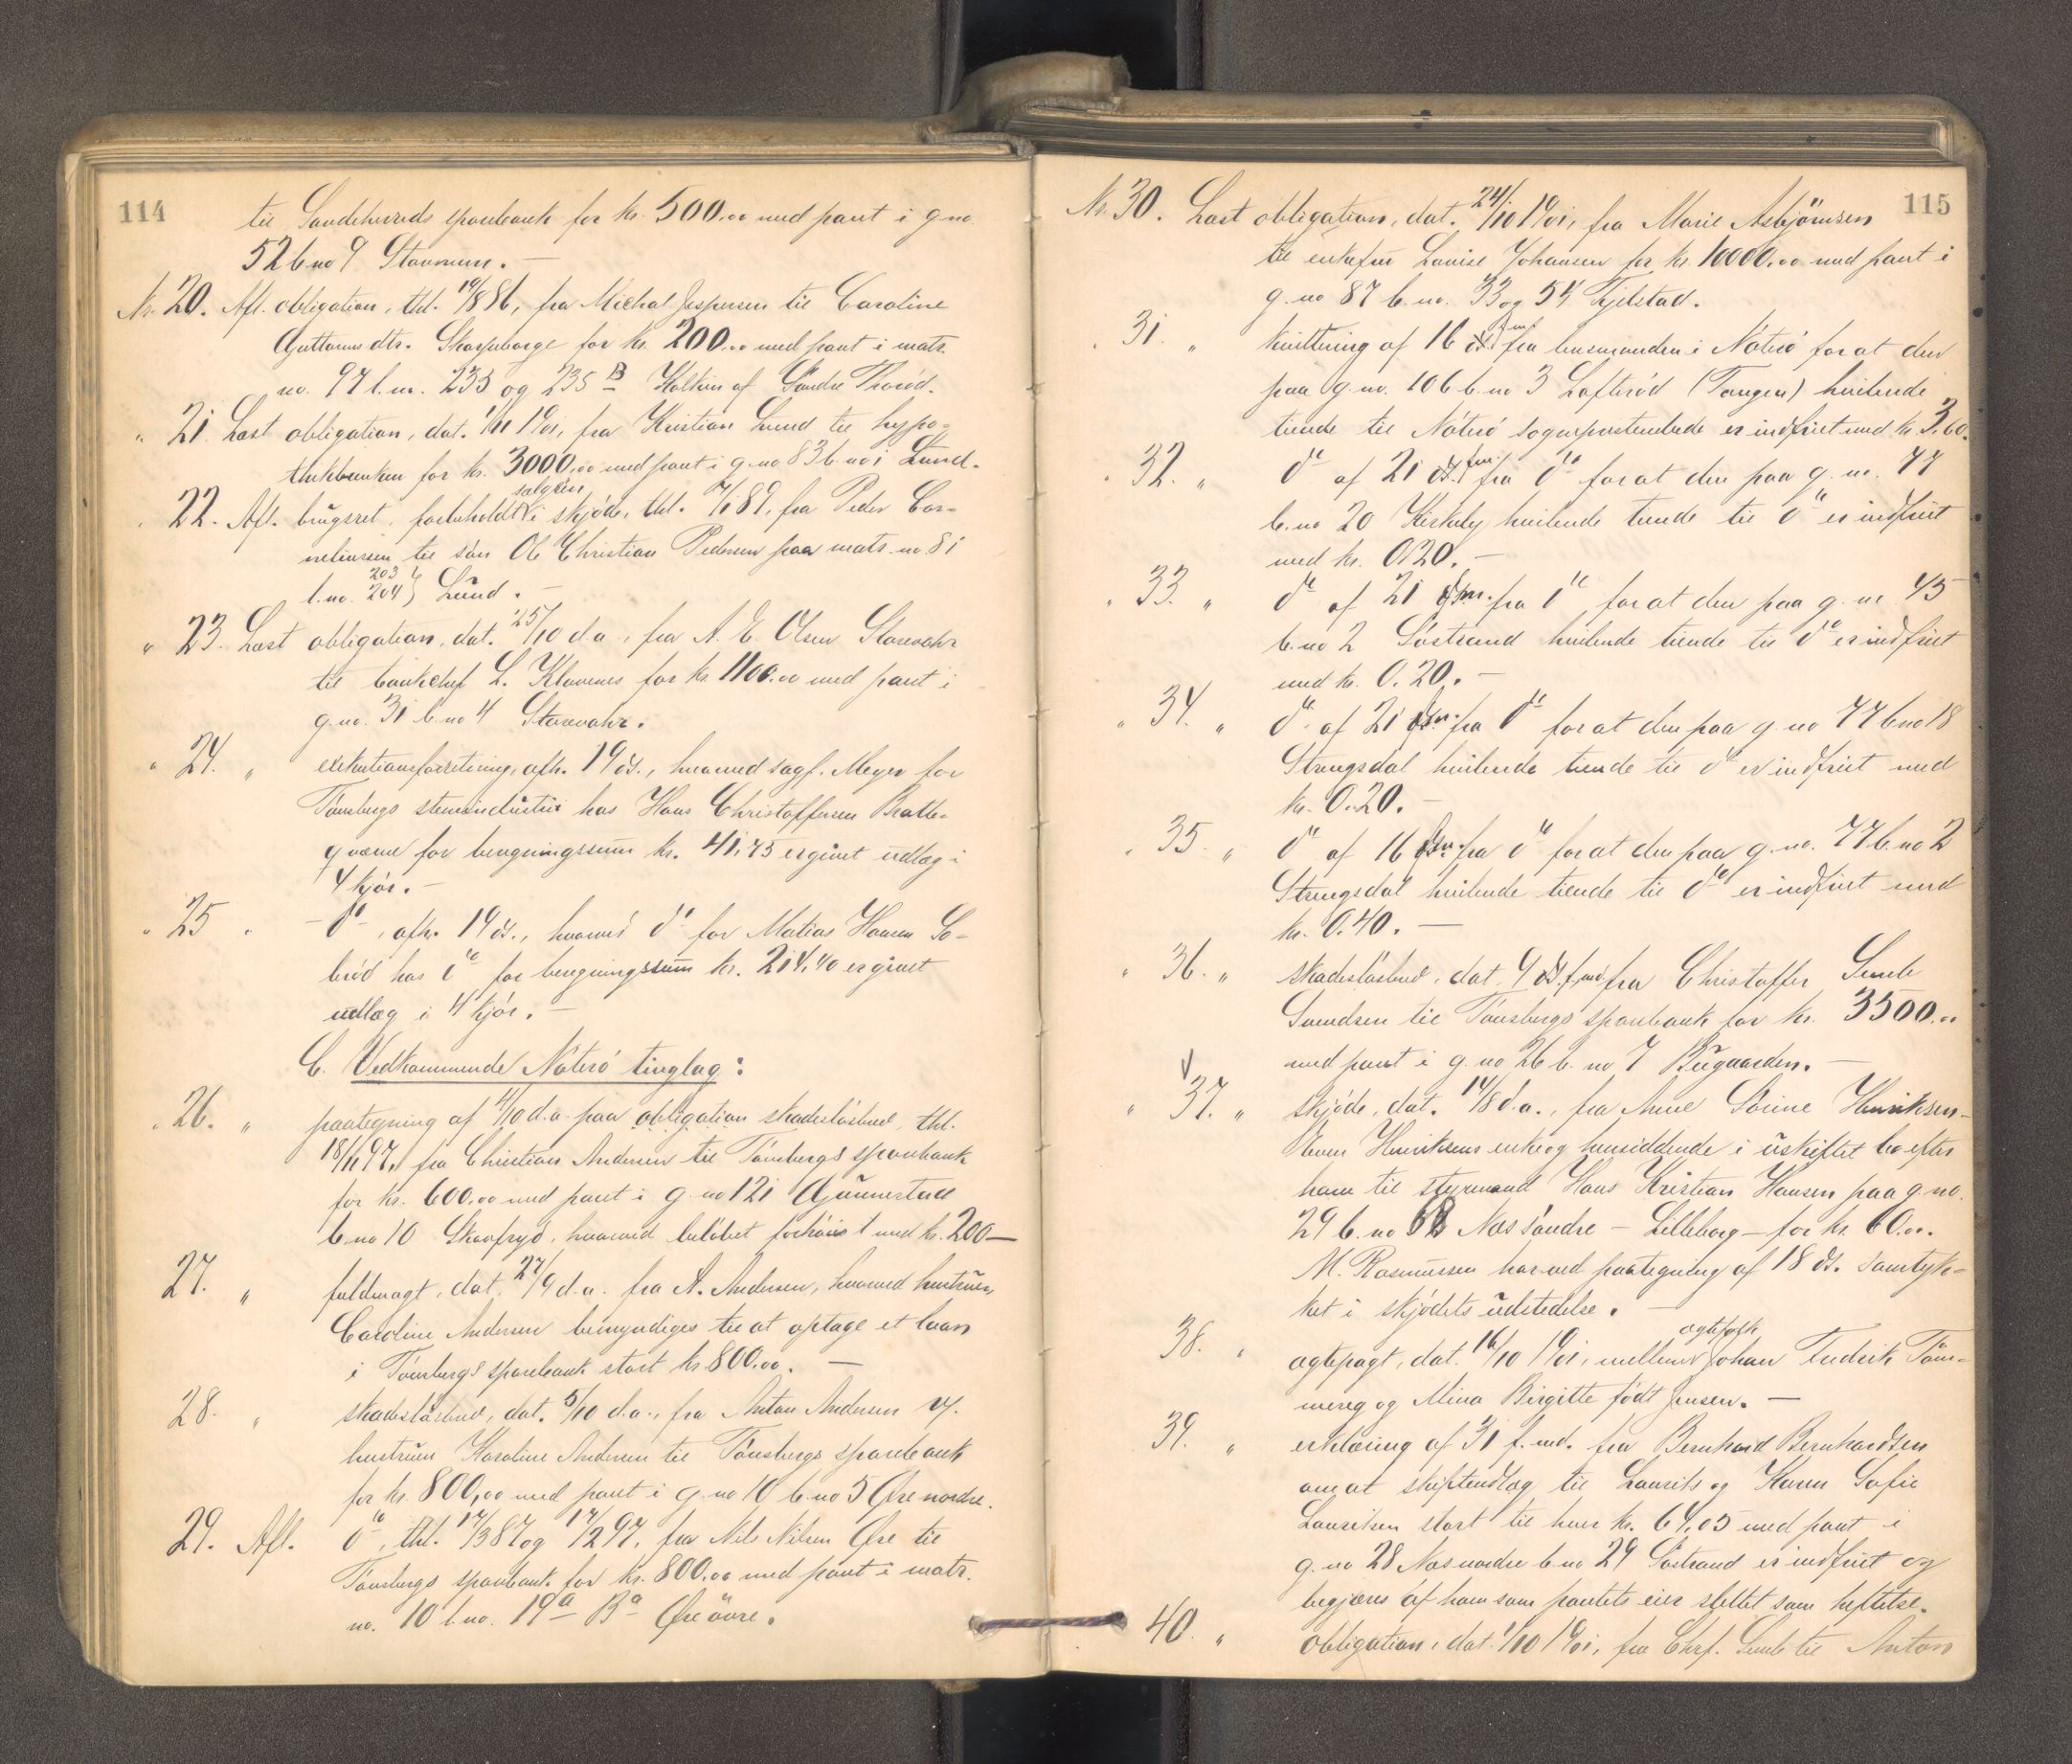 114
til Sandeherreds sparebank for kr. 500.00 med pant i g.no.
52 b.no 9 Stavnum. —
Nr. 20. Afl. obligation, thl. 10/8 86, fra Michal Jespersen til Caroline
Guttorms dtr. Skarpeborge for kr. 200.00 med pant i matr.
no. 97 l.nr. 235 og 235 B af Söndre
" 21. Læst obligation, dat. 1/11 1901, fra Kristian Lund til hypo-
thekbanken for kr. 3000.00 med pant i g.no 83 b.no 1 Lund.
" 22. Afl. brugsret, forbeholdt sælgeren i skjöde, thl. 7/1 89, fra Peder Cor-
neliussen til sön Ole Christian Pedersen paa matr.no. 81
l.no. 203 204 } Lund. —
" 23. Læst obligation, dat. 25/10 d.a., fra A. E. Olsen Storevahr
til bankchef L. Klavenes for kr. 1100.00 med pant i
g.no. 31 b.no 4 Storevahr.
" 24. " exekutionsforretning, afh. 19 ds., hvorved sagf. Meyer for
Tönsbergs stenindustri hos Hans Christoffersen Bratte-
for beregningssum kr. 41,75 er givet udlæg i
4 kjör. —
" 25 " — do —, afh. 19 ds., hvorved do for Matias Hansen So-
bröd hos do for beregningssum kr. 214,40 er givet
udlæg i 4 kjör. —
C. Vedkommende Nöterö tinglag:
" 26. " paategning af 4/10 d.a. paa obligation skadeslösbrev, thl.
18/11 97, fra Christian Andersen til Tönsbergs sparebank
for kr. 600.00 med pant i g.no 121 Gunnestad
b.no 10 Skovfryd, hvorved belöbet forhöiet med kr. 200 —
27. " fuldmagt, dat. 27/9 d.a. fra A. Andersen, hvorved hustruen,
Caroline Andersen bemyndiges til at optage et laan
i Tönsbergs sparebank stort kr. 800.00. —
28. " skadeslösbrev, dat. 5/10 d.a., fra Anton Andersen v/.
hustruen Karoline Andersen til Tönsbergs sparebank
for kr. 800,00 med pant i g.no 10 b.no 5 Öre nordre.
29. Afl. do, thl. 17/3 87 og 17/2 97, fra Nils Nilsen Öre til
Tönsbergs sparebank for kr. 800.00 med pant i matr.
no. 10 l.no. 19a Ba Öre övre.
115
Nr. 30. Læst obligation, dat. 24/10 1901, fra Marie Asbjörnsen
til enkefru Louise Johansen for kr. 10000.00 med pant i
g.no 87 b.no. 33 og 54 Kjelstad.
" 31. " kvittering af 16 f.m. fra lensmanden i Nöterö for at den
paa g.no. 106 b.no 3 Lofteröd (Tangen) hvilende
tiende til Nöterö sogneprestembede er indfriet med kr. 3,60.
" 32. " do af 21 f.m. fra do for at den paa g.nr. 77
b.no 20 Kirkeby hvilende tiende til do er indfriet
med kr. 0.20. —
" 33. " do af 21 f.m. fra do for at den paa g.nr. 45
b.no 2 Söstrand hvilende tiende til do er indfriet
med kr. 0.20. —
" 34. " do af 21 f.m. fra do for at den paa g.no 77 b.no 18
Strengsdal hvilende tiende til do er indfriet med
kr. 0.20. —
" 35. " do af 16 f.m. fra do for at den paa g.no. 77 b.no 2
Strengsdal hvilende tiende til do er indfriet med
kr. 0.40. —
" 36. " skadeslösbrev, dat. 9 f.md. fra Christoffer Semb
Svendsen til Tönsbergs sparebank for kr. 3500.00
med pant i g.no 26 b.no 7 Bugaarden. —
" 37. " skjöde, dat. 14/8 d.a., fra Anne Sörine Henriksen —
Even Henriksens enke og hensiddende i uskiftet bo efter
ham til styrmand Hans Kristian Hansen paa g.no.
29 b.no Næs söndre — Lilleborg — for kr. 60.00.
M. Rasmussen har ved paategning af 18 ds. samtyk-
ket i skjödets udstedelse. —
38. " ægtepagt, dat. 16/10 1901, mellem ægtefolk Johan Fredrik Töm-
mereg og Mina Birgitte födt Jensen. —
39. " erklæring af 31 f.md. fra Bernhard Bernhardsen
om at skifteudlæg til Laurits og Karen Sofie
Lauritsen stort til hver kr. 64,05 med pant i
g.no 28 Næs nordre b.no 29 Söstrand er indfriet og
begjæres af ham som pantets eier slettet som heftelse.
40. " obligation, dat. 1/10 1901, fra Chrf. Semb til Anton